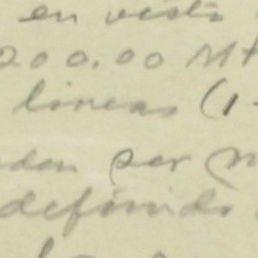 en vista
200.00 Mt
lineas (1-
den por m
definido